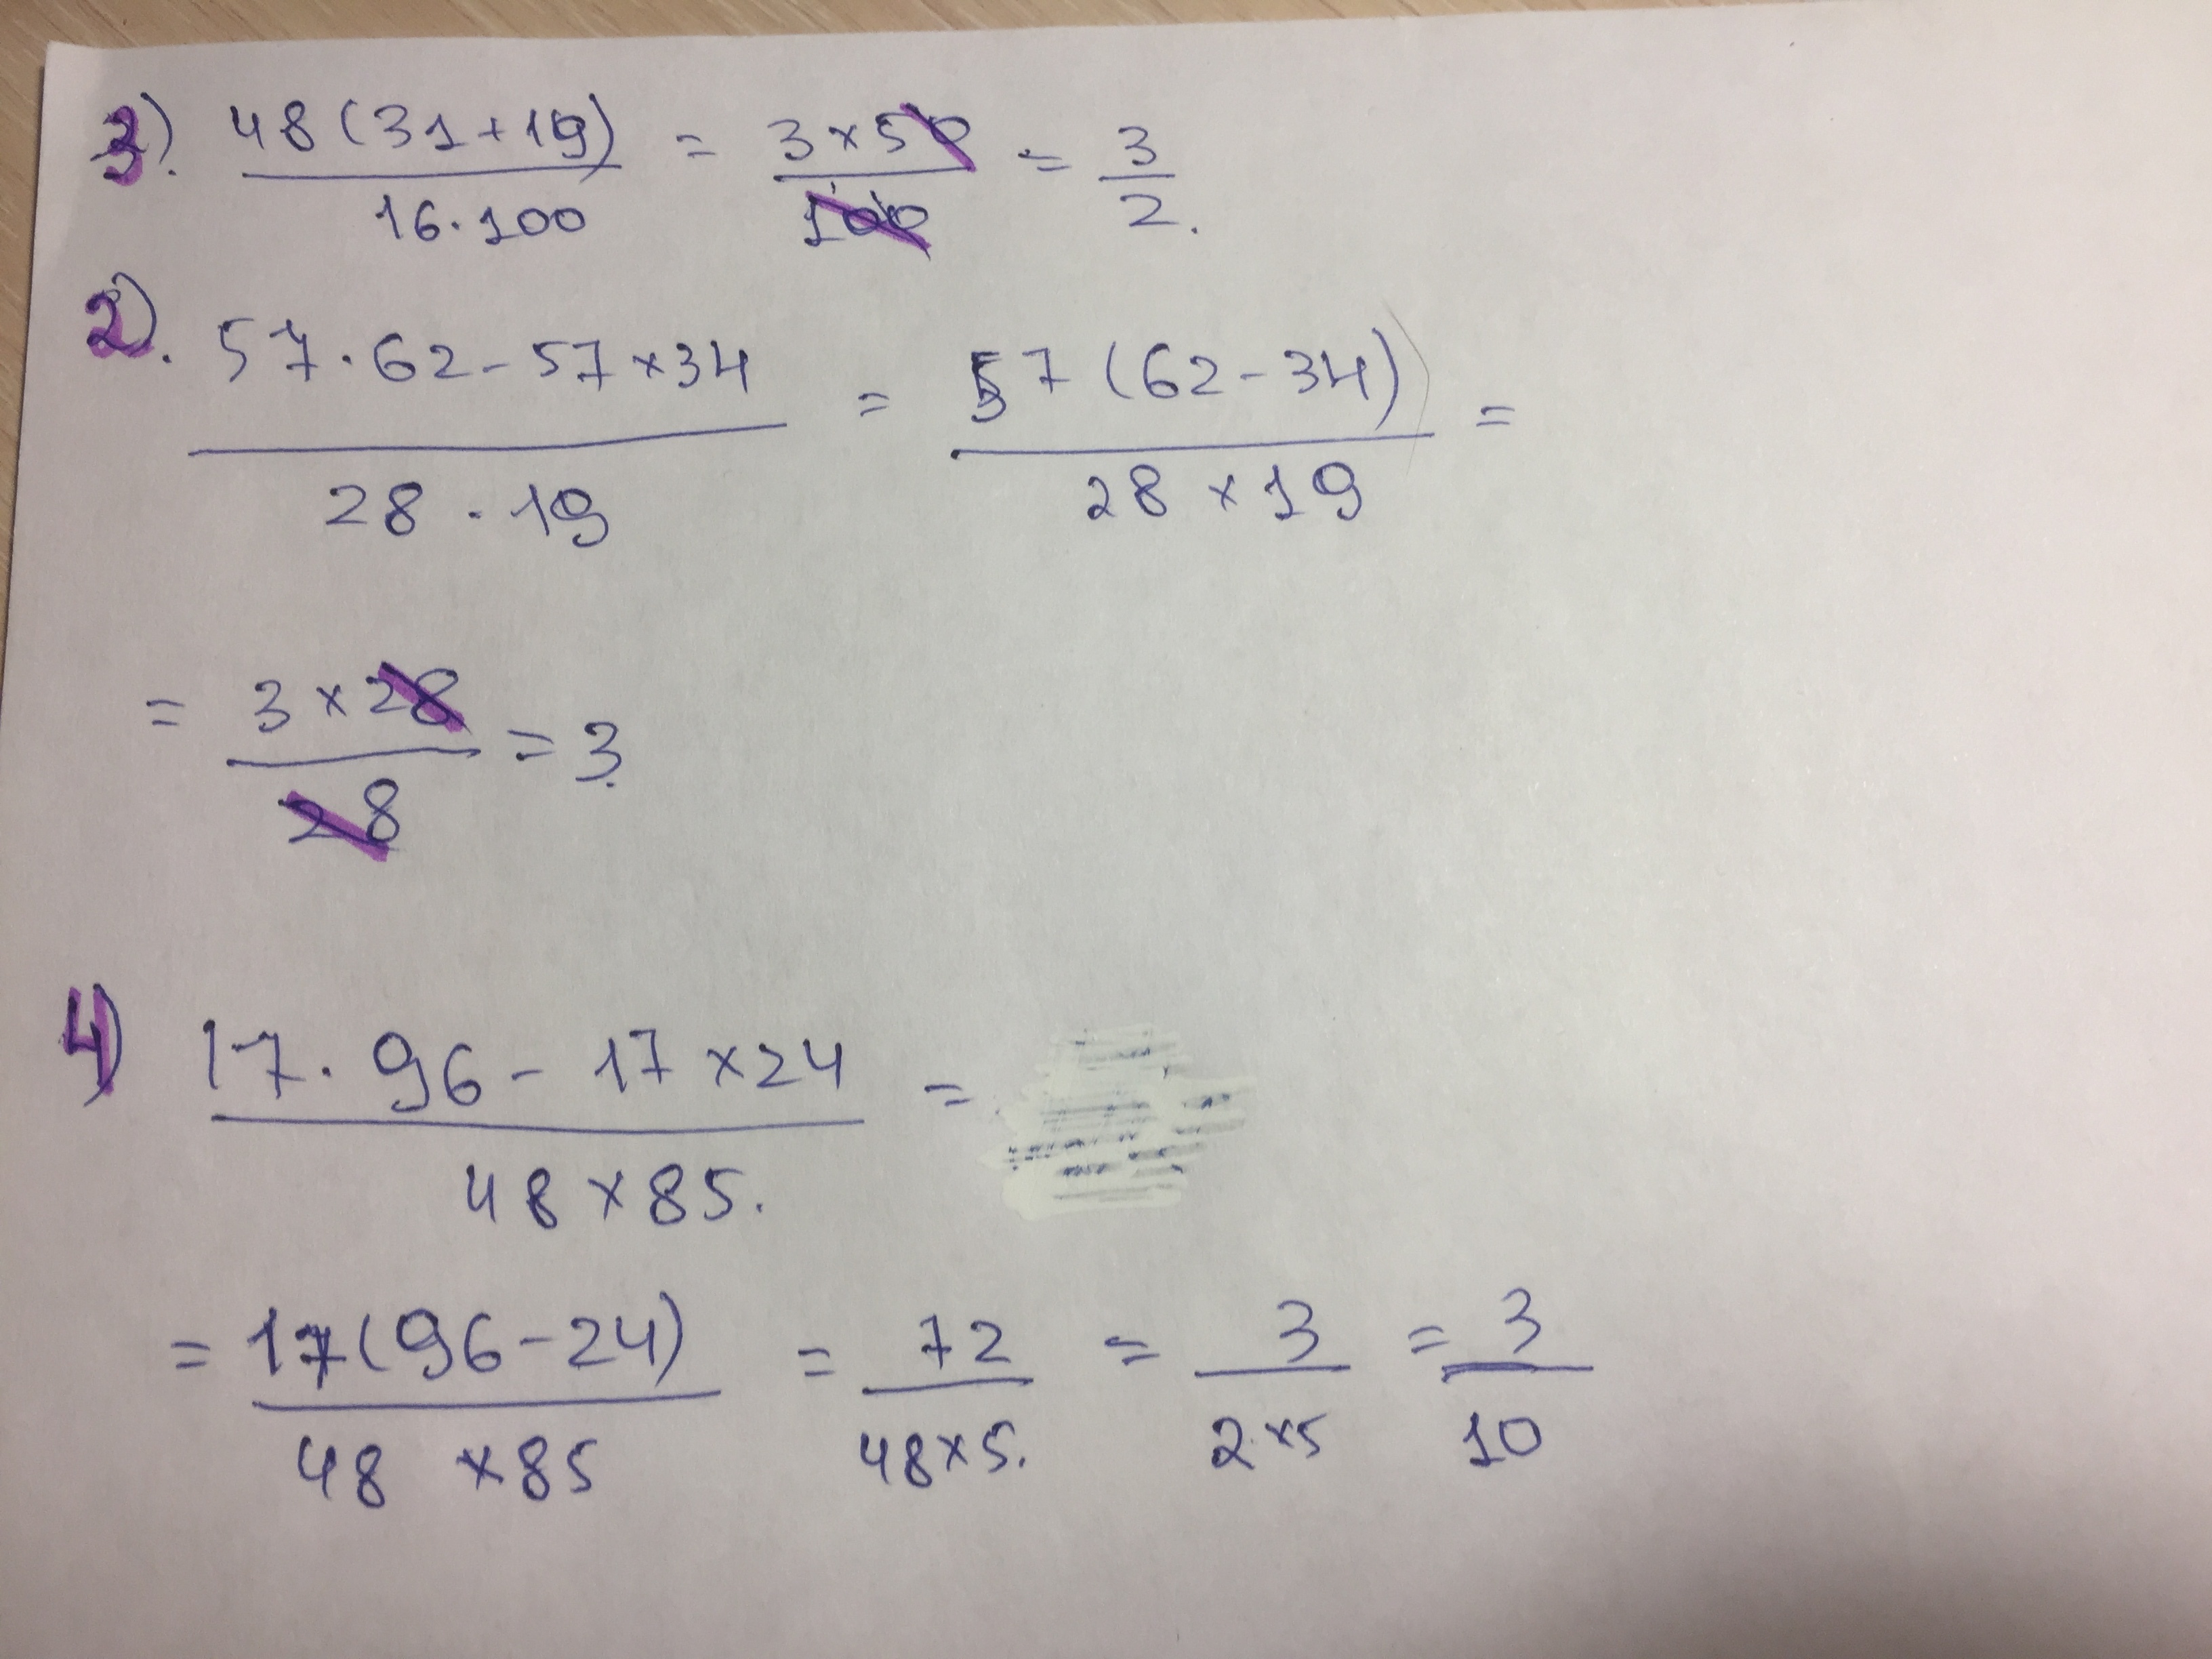 3). 48(31+19) / 16·100 = 3×50 / 100 = 3 / 2.
2). 57·62-57×34 / 28·19 = 57(62-34) / 28×19 =
= 3×28 / 28 = 3.
4) 17·96-17×24 / 48×85. =
= 17(96-24) / 48×85 = 72 / 48×5. = 3 / 2×5 = 3 / 10